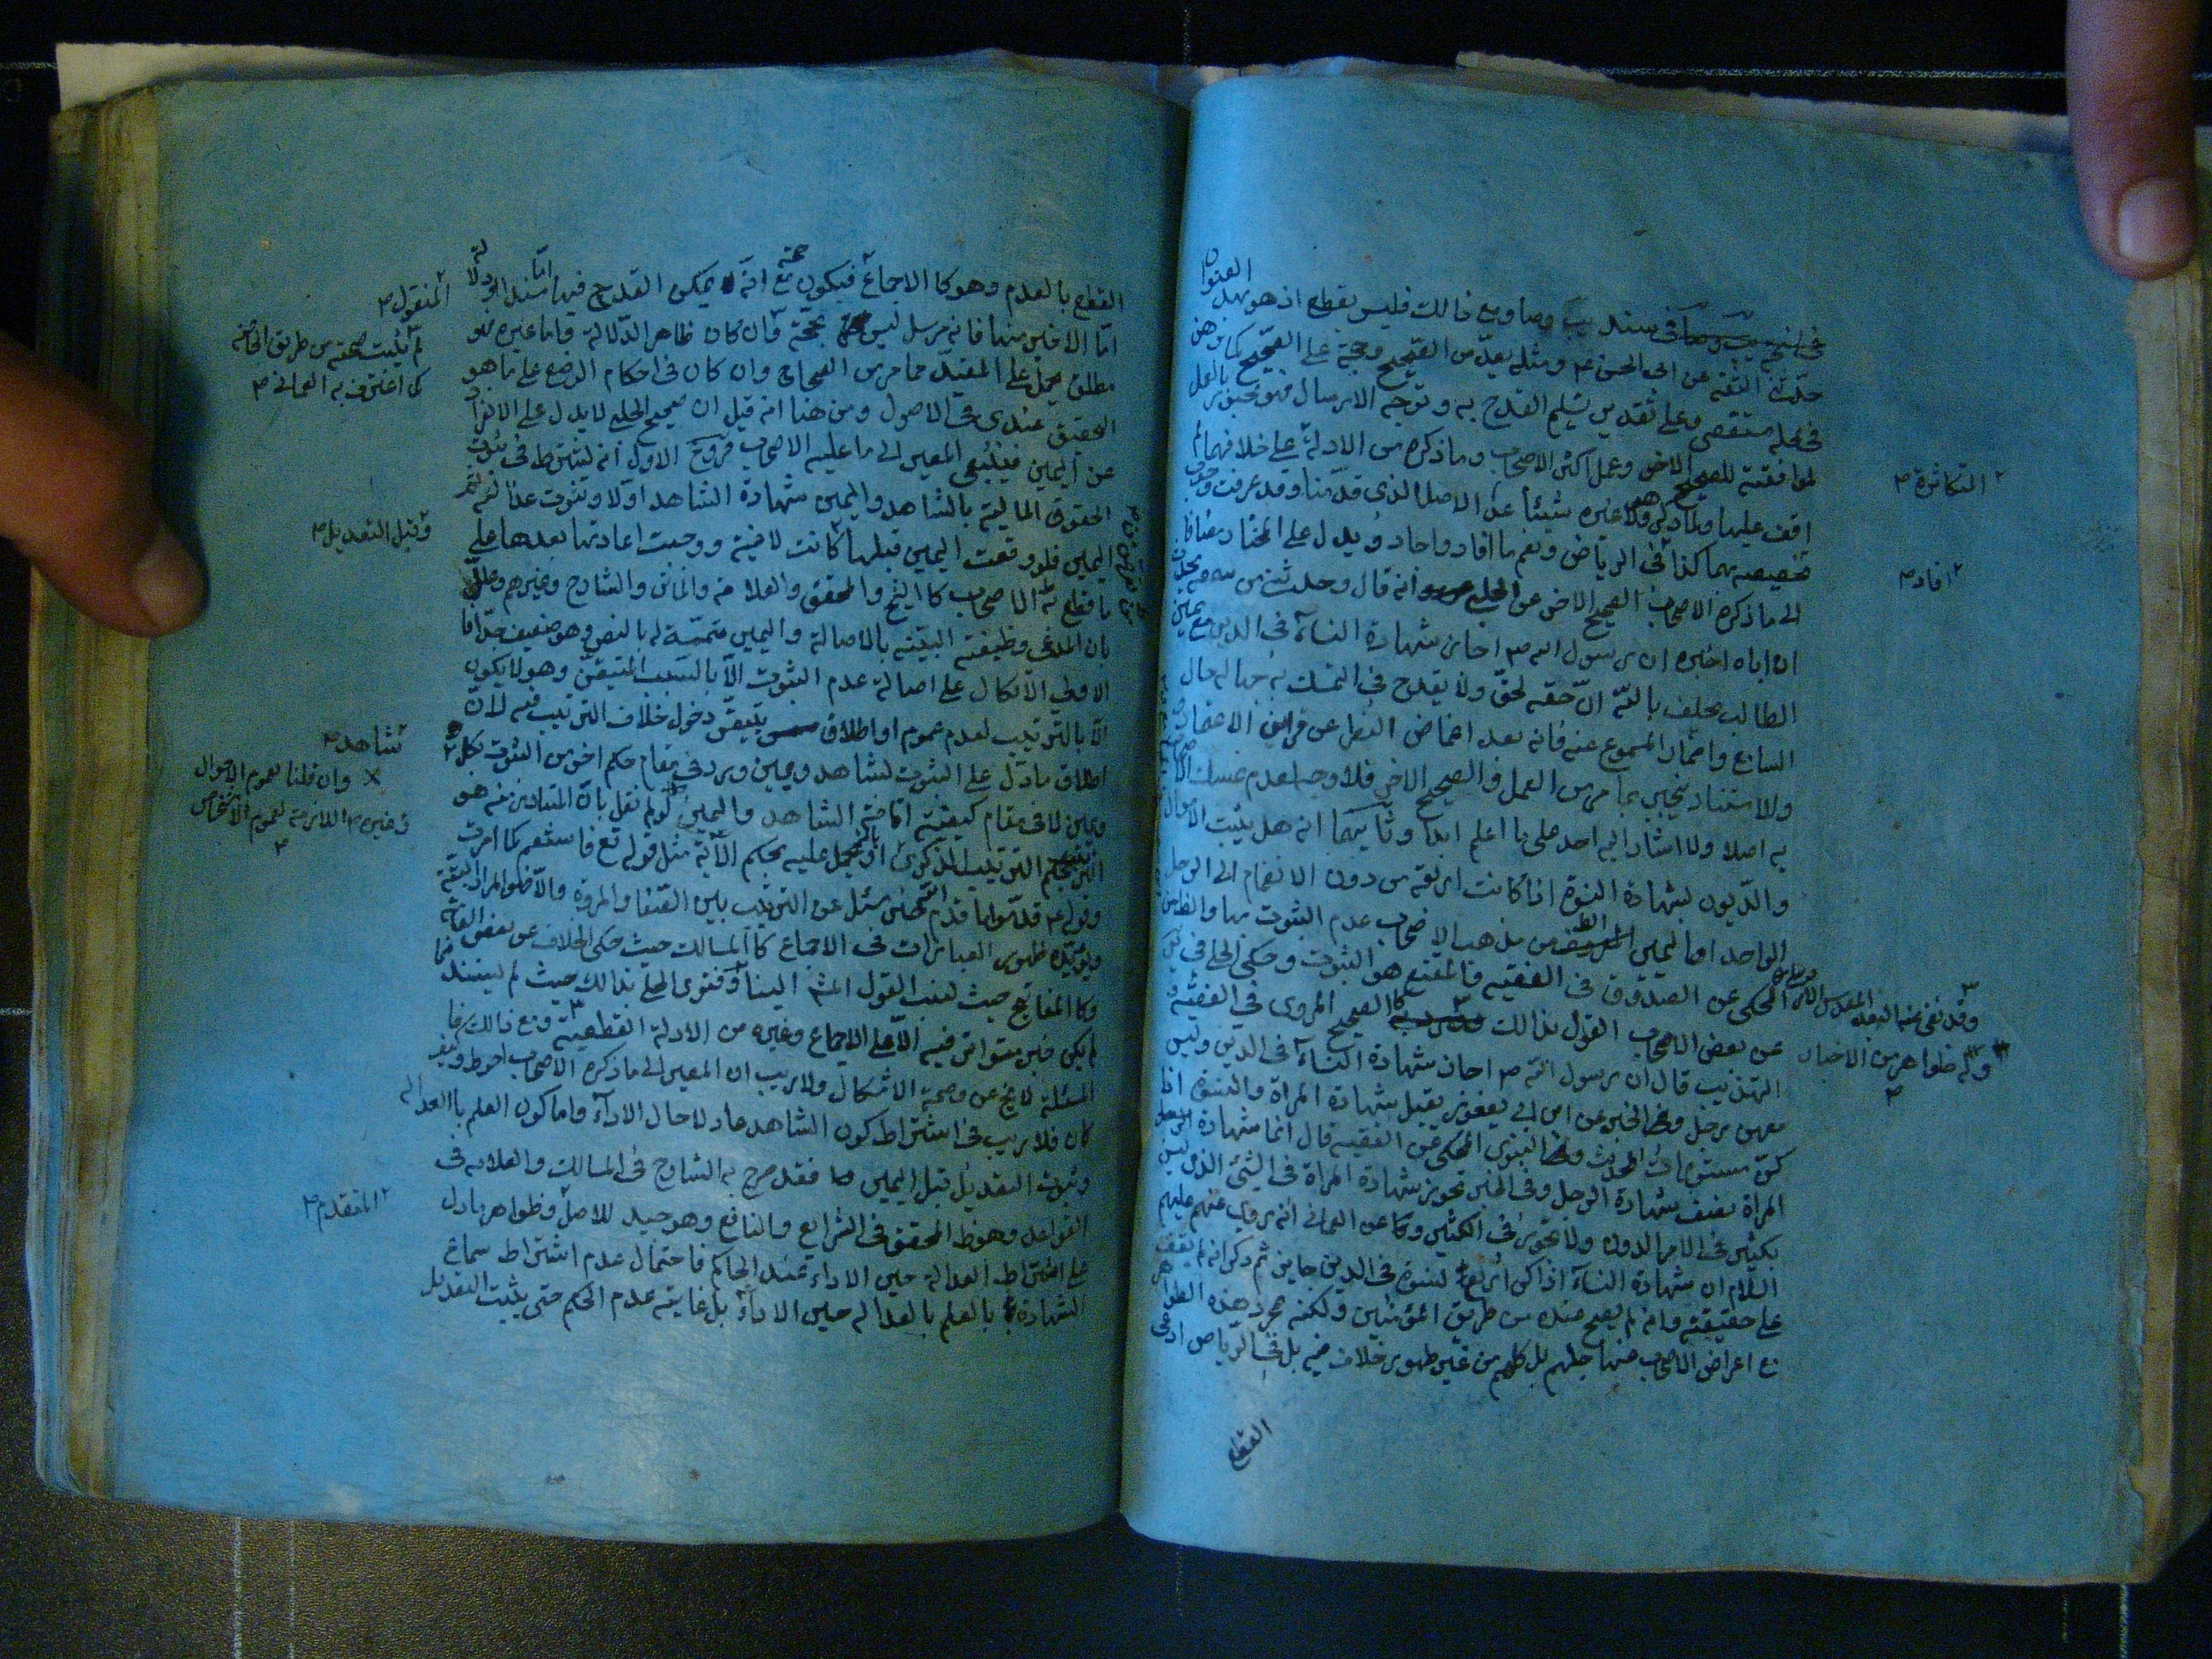 في سند يب وصا ومع ذالك فليس بقطع اذ هو بهذا العنوان
حدثني الثقة عن ابي الحسن ع ومثله يعد من الصحيح وحجة على الصحيح كما برهن
في محله مستقصى وعلى تقدير تسليم القدح به وتوجه الارسال فهو مجبور بالعمل
لموافقته للصحيح الاخر وعمل اكثر الاصحاب وما ذكره من الادلة على خلافهما لم
اقف عليها ولم يذكر هو ولا غيره شيئا عدا الاصل الذي قدمنا وقد عرفت وجوب
تخصيصه بهما كذا في الرياض ونعم ما افاد واجاد ويدل على المختار مضافا
الى ما ذكره الاصحاب الصحيح الاخر عن الحلبي انه قال وحدثني من سمعه يحدث
ان اباه اخبره ان رسول الله ص اجاز شهادة النساء في الدين مع يمين
الطالب يحلف بالله ان حقه لحق ولا يقدح في التمسك به جهالة حال
السامع واضمار المسموع عنه فانه بعد اغماض النظر عن قراين الاعتماد
والاستناد ينجبر بما مر من العمل والصحيح الاخر فلا وجه لعدم تمسك الاصحاب
به اصلا ولا اشار اليه احد على ما اعلم ابدا وثانيهما انه هل يثبت الاموال
والديون بشهادة النسوة اذا كانت اربعة من دون الانضمام الى الرجل
الواحد او اليمين من مذهب الاصحاب عدم الثبوت بها والظاهر
المحكي عن الصدوق في الفقيه والمقنع هو الثبوت وحكى الحلي في
عن بعض الاصحاب القول بذالك الصحيح المروي في الفقيه
التهذيب قال ان رسول الله ص اجاز شهادة النساء في الدين وليس
معهن رجل والخبر عن ابن ابي يعفور يقبل شهادة المراة والنسوة اذا
كن مستورات الحديث والنبوي المحكي عن الفقيه قال انما شهادة
المراة نصف شهادة الرجل وفي الخبر تجوز شهادة المراة في الشئ الذي ليس
بكثير في الامر الدون ولا تجوز في الكثير وكا عن العماني انه روي عنهم عليهم
السلام ان شهادة النساء اذا كن اربع نسوة في الدين جايز ثم ذكر انه لم يقف
على حقيقته وانه لم يصح عنده من طريق المؤمنين ولكنه مجرد هذه الظواهر
مع اعراض الاصحاب عنها جلهم بل كلهم من غير ظهور خلاف فيه بل في الرياض ادعى
القطع
التكاثرة
افاد
وله ظواهر من الاخبار
القطع بالعدم وهو كالاجماع فيكون حجة مع انه يمكن القدح فيها اما سندا او دلالة
اما الاخير منها فانه مرسل ليس بحجة وان كان ظاهر الدلالة واما غيره فهو
مطلق يحمل على المقيد مما مر من الصحاح وان كان في احكام الوضع على ما هو
التحقيق عندي في الاصول ومن هنا انه قيل ان صحيح الحلبي لا يدل على الانفراد
عن اليمين فينبغي المصير الى ما عليه الاصحاب فروع الاول انه يشترط في ثبوت
الحقوق المالية بالشاهد واليمين شهادة الشاهد اولا وثبوت عدالته ثم
اليمين فلو وقعت اليمين قبلها كانت لاغية ووجبت اعادتها بعدها على
ما قطع به الاصحاب كالشيخ والمحقق والعلامة والفاضل والشارح وغيرهم وعلل
بان المدعي وظيفته البينة بالاصالة واليمين متممة له بالنص وهو ضعيف جدا فا
الاولى الاتكال على اصالة عدم الثبوت الا بالسبب المتيقن وهو لا يكون
الا بالترتيب لعدم عموم او اطلاق يتيقن دخول خلاف الترتيب فيه لان
اطلاق ما دل على الثبوت بشاهد ويمين ورد في مقام حكم اخر من الثبوت بكل
ويمين لا في مقام كيفية اقامة الشاهد واليمين لو لم نقل بان المتبادر منه هو
الترتيب الذكري او يحمل عليه بحكم الآية مثل قوله تع فاستقم كما امرت
وقوله ع قدموا ما قدم الله حين سئل عن الترتيب بين الصفا والمروة
ويؤيده ظهور العبارات في الاجماع كالمسالك حيث حكى الخلاف عن بعض العامة
وكالمفاتيح حيث نسب القول المش الينا وفتوى الحلي بذالك حيث لم يستند فيما
لم يكن خبر متواتر فيه الا على الاجماع وغيره من الادلة القطعية ومع ذالك فا
المسئلة لا يخ عن وصمة الاشكال ولا ريب ان المصير الى ما ذكره الاصحاب احوط وكيف
كان فلا ريب في اشتراط كون الشاهد عادلا حال الاداء واما كون العلم بالعدالة
وثبوت التعديل قبل اليمين فقد صرح به الشارح في المسالك والعلامة في
القواعد وهو ظ المحقق في الشرايع والنافع وهو جيد للاصل وظواهر ما دل
على اشتراط العدالة حين الاداء عند الحاكم فاحتمال عدم اشتراط سماع
الشهادة بالعلم بالعدالة حين الاداء بل غايته عدم الحكم حتى يثبت التعديل
المنقول
لم يثبت صحته من طريق الخاصة
كما اعترف به العماني
وقبل التعديل
شاهد
وان قلنا بعموم الاحوال
وغيره اللازمة لعموم الاشخاص
المتقدم